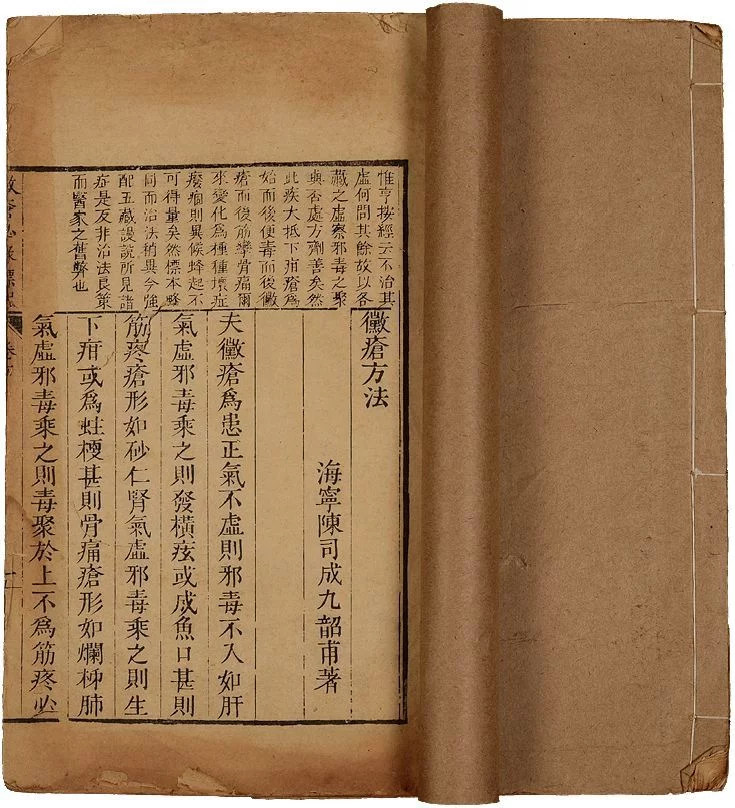 惟亨按經云不治其
虛何問其餘故以各
藏之虛察邪毒之聚
與否處方劑善矣然
此疾大抵下疳瘡爲
始而後便毒而後黴
瘡而後筋攣骨痛爾
來變化爲種種壞症
癈痼則異候蜂起不
可得量矣然標本略
同而治法稍異今強
配五藏謾說所見諸
症是反非治法良策
而醫家之舊弊也
黴瘡方法
海寧陳司成九韶甫著
夫黴瘡爲患正氣不虛則邪毒不入如肝
氣虛邪毒乘之則發橫痃或成魚口甚則
筋疼瘡形如砂仁腎氣虛邪毒乘之則生
下疳或爲蛀梗甚則骨痛瘡形如爛柹肺
氣虛邪毒乘之則毒聚於上不爲筋疼必